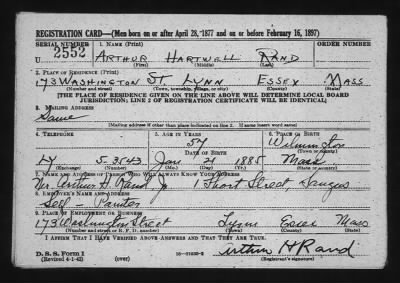 REGISTRATION CARD—(Men born on or after April 28, 1877 and on or before February 16, 1897)
SERIAL NUMBER 1. NAME (Print) ORDER NUMBER
U 2552 ARTHUR HARTWELL RAND
(First) (Middle) (Last)
2. PLACE OF RESIDENCE (Print)
173 WASHINGTON ST LYNN ESSEX MASS
(Number and street) (Town, township, village, or city) (County) (State)
[THE PLACE OF RESIDENCE GIVEN ON THE LINE ABOVE WILL DETERMINE LOCAL BOARD
JURISDICTION; LINE 2 OF REGISTRATION CERTIFICATE WILL BE IDENTICAL]
3. MAILING ADDRESS
Same
[Mailing address if other than place indicated on line 2. If same insert word same]
4. TELEPHONE 5. AGE IN YEARS 6. PLACE OF BIRTH
57 Wilmington
DATE OF BIRTH (Town or county)
LY 5-3543 Jan 21 1885 Mass
(Exchange) (Number) (Mo.) (Day) (Yr.) (State or country)
7. NAME AND ADDRESS OF PERSON WHO WILL ALWAYS KNOW YOUR ADDRESS
Mr. Arthur H. Rand Jr 1 Street, Saugus
8. EMPLOYER'S NAME AND ADDRESS
Self -
9. PLACE OF EMPLOYMENT OR BUSINESS
173 Washington Street Lynn Essex Mass
(Number and street or R. F. D. number) (Town) (County) (State)
I AFFIRM THAT I HAVE VERIFIED ABOVE ANSWERS AND THAT THEY ARE TRUE.
Arthur H Rand
D. S. S. Form 1
(Revised 4-1-42) (over) (Registrant's signature)